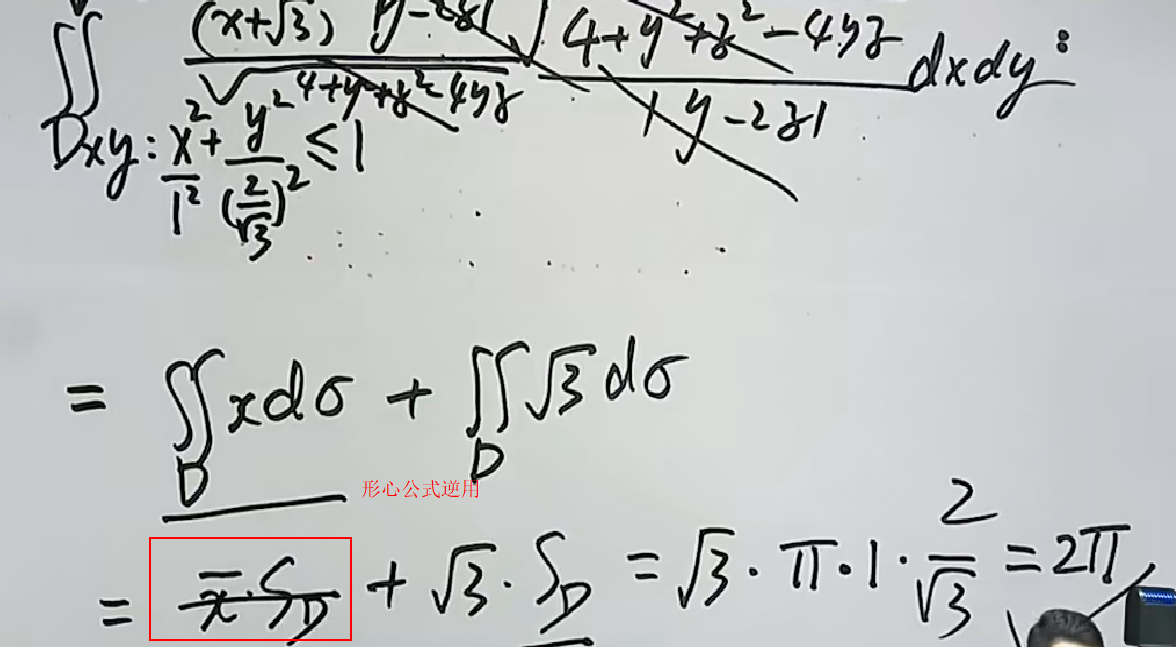 ∬ (x+√3) |y-2z| / √(4+y²+z²-4yz) · √(4+y²+z²-4yz) / |y-2z| dxdy:
Dxy: x²/1² + y²/(2/√3)² ≤ 1
= ∬_D xdσ + ∬_D √3 dσ
形心公式逆用
= x̄·S_D + √3·S_D = √3·π·1·2/√3 = 2π